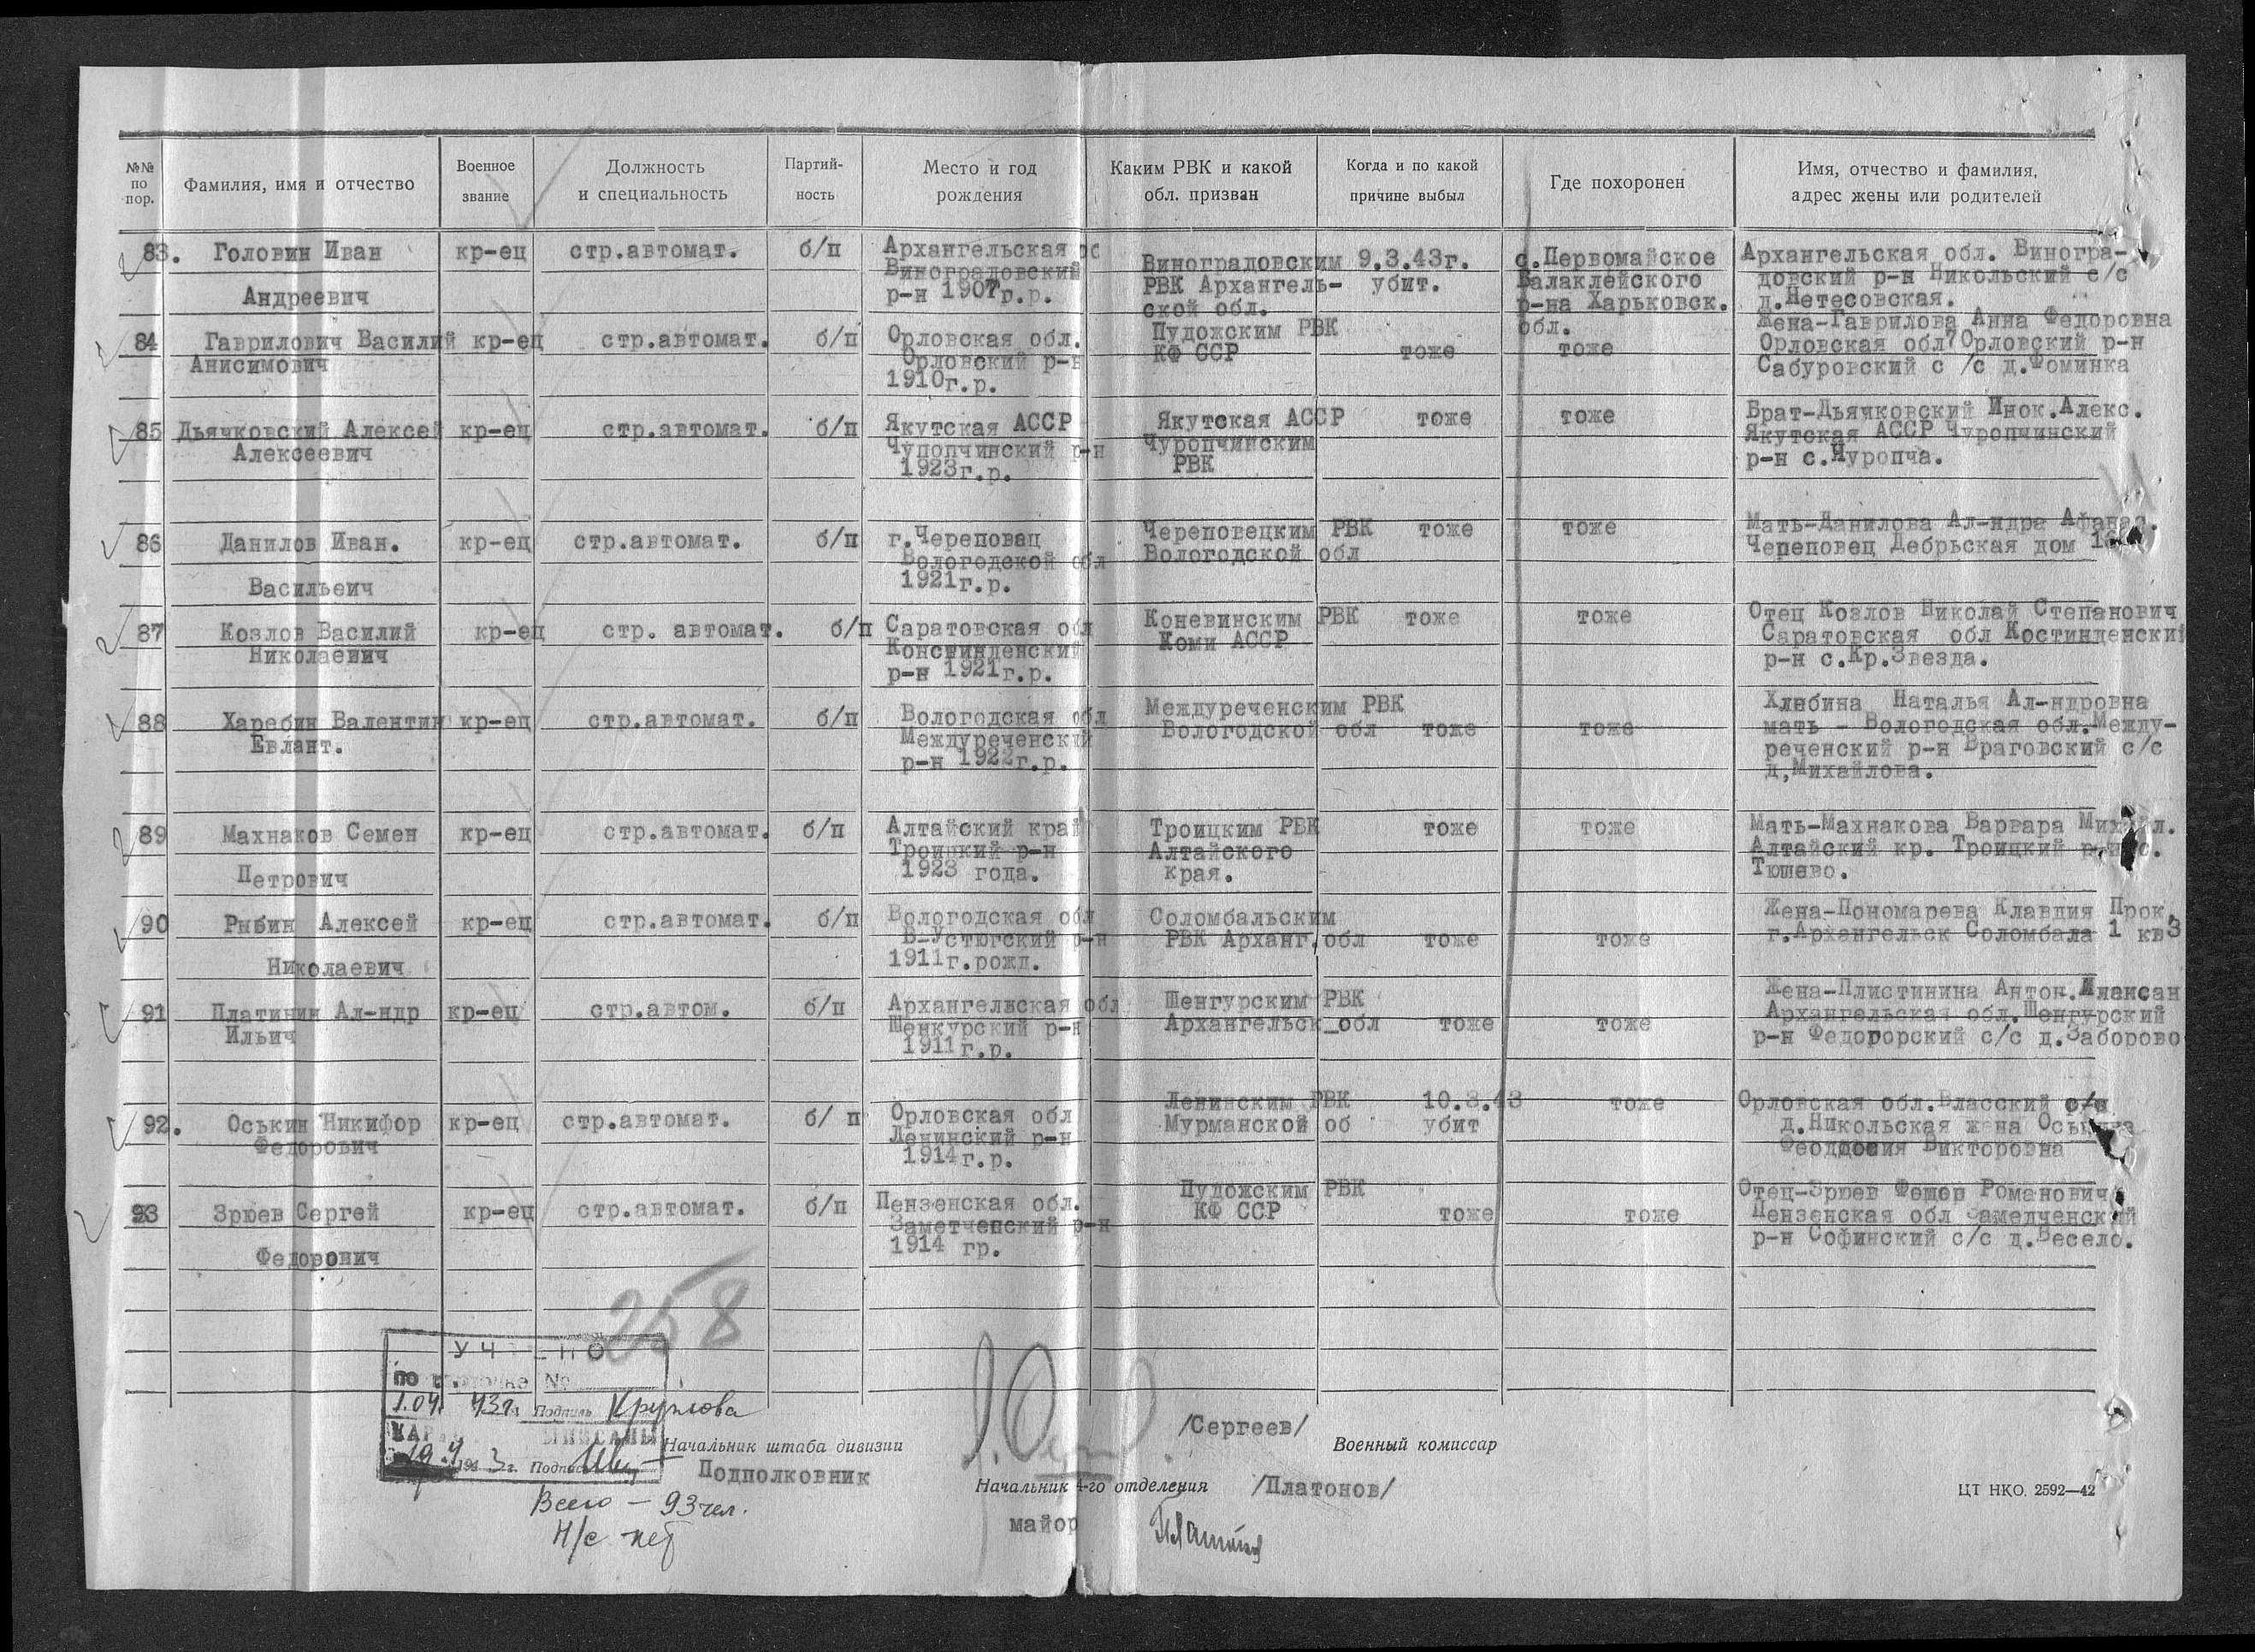 №№ по пор.
Фамилия, имя и отчество
Военное звание
Должность и специальность
Партий- ность
Место и год рождения
Каким РВК и какой обл. призван
Когда и по какой причине выбыл
Где похоронен
Имя, отчество и фамилия, адрес жены или родителей
83. Головин Иван кр-ец стр.автомат. б/п Архангельская об Виноградовским 9.3.43г. с.Первомайское Архангельская обл. Виногра-
Виноградовский РВК Архангель- убит. Балаклейского довский р-н Никольский с/с
Андреевич р-н 1907г.р. ской обл. р-на Харьковск. д.Нетесовская.
обл.
84 Гаврилович Василий кр-ец стр.автомат. б/п Орловская обл. Пудожским РВК Жена-Гаврилова Анна Федоровна
Анисимович Орловский р-н КФ ССР тоже тоже Орловская обл Орловский р-н
1910г.р. Сабуровский с /с д.Фоминка
85 Дьячковский Алексей кр-ец стр.автомат. б/п Якутская АССР Якутская АССР тоже тоже Брат-Дьячковский Инок.Алекс.
Алексеевич Чупопчинский р-н Чуропчинским Якутская АССР Чуропчинский
1923г.р. РВК р-н с.Чуропча.
86 Данилов Иван. кр-ец стр.автомат. б/п г.Череповец Череповецким РВК тоже тоже Мать-Данилова Ал-ндра Афанас.
Вологодской обл Вологодской обл Череповец Дебрьская дом
Васильеич 1921г.р.
87 Козлов Василий кр-ец стр. автомат. б/п Саратовская обл Коневинским РВК тоже тоже Отец Козлов Николай Степанович
Николаевич Консвинденский Коми АССР Саратовская обл Костинденский
р-н 1921г.р. р-н с.Кр.Звезда.
88 Харебин Валентин кр-ец стр.автомат. б/п Вологодская обл Междуреченским РВК Хлебина Наталья Ал-ндровна
Евлант. Междуреченский Вологодской обл тоже тоже мать - Вологодская обл.Между-
р-н 1922г.р. реченский р-н Враговский с/с
д,Михайлова.
89 Махнаков Семен кр-ец стр.автомат. б/п Алтайский край Троицким РВК тоже тоже Мать-Махнакова Варвара Михайл.
Троицкий р-н Алтайского Алтайский кр. Троицкий р-н с.
Петрович 1923 года. края. Тюшево.
90 Рыбин Алексей кр-ец стр.автомат. б/п Вологодская обл Соломбальским Жена-Пономарева Клавдия Прок.
В-Устюгский р-н РВК Арханг.обл тоже тоже г.Архангельск Соломбала 1 кв3
Николаевич 1911г.рожд.
91 Платинин Ал-ндр кр-ец стр.автом. б/п Архангельская обл Шенгурским РВК Жена-Плистинина Антон.
Ильич Шенкурский р-н Архангельск_обл тоже тоже Архангельская обл.Шенгурский
1911г.р. р-н Федорорский с/с д.Заборово
92. Оськин Никифор кр-ец стр.автомат. б/ п Орловская обл Ленинским РВК 10.3.43 тоже Орловская обл.Власский с/с
Федорович Ленинский р-н Мурманской об убит д.Никольская жена Оськина
1914г.р. Феодосия Викторовна
93 Зрюев Сергей кр-ец стр.автомат. б/п Пензенская обл. Пудожским РВК Отец-Зрюев Федор Романович
Заметченский р-н КФ ССР тоже тоже Пензенская обл Замедченский
Федорович 1914 гр. р-н Софинский с/с д.Весело.
258
УЧТЕНО
по
1.04 43г. Подпись Круглова
19.4 1943г. Подпись
Начальник штаба дивизии /Сергеев/ Военный комиссар
Подполковник
Начальник 4-го отделения /Платонов/
майор
Всего — 93 чел.
Н/с нет
ЦТ НКО. 2592—42